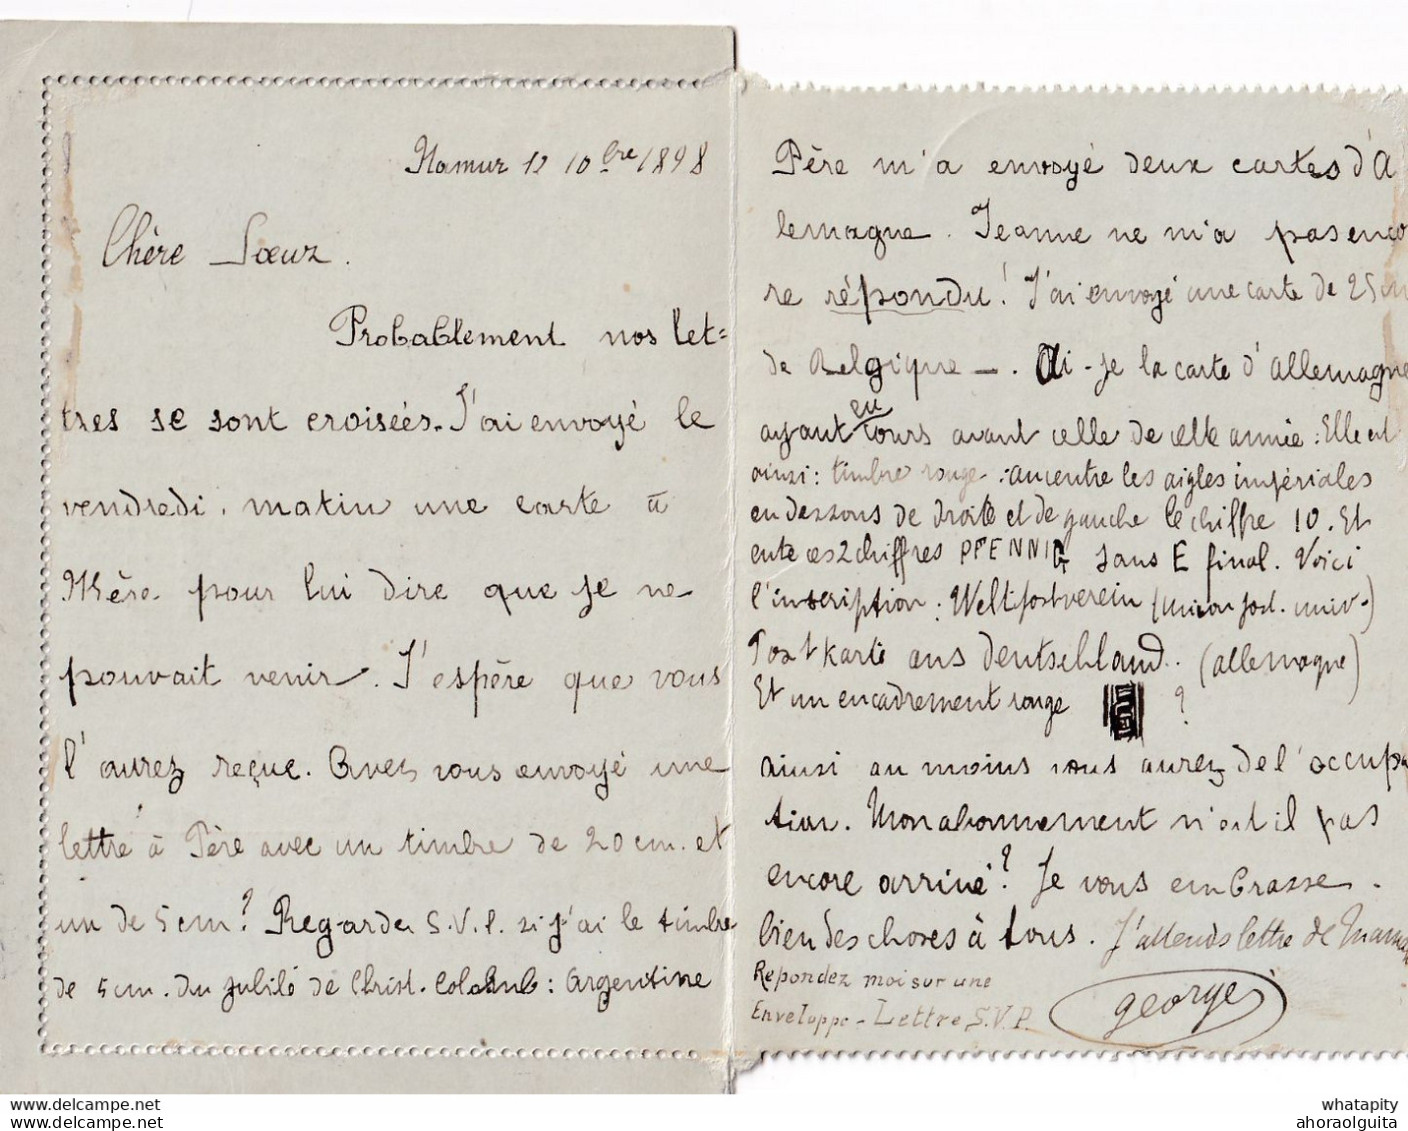 Namur 12 10bre 1898
Chère Sœur.
Probablement nos let=
tres se sont croisées. J'ai envoyé le
vendredi. matin une carte à
Mère pour lui dire que je ne
pouvait venir. J'espère que vous
l'aurez reçue. Avez vous envoyé une
lettre à Père avec un timbre de 20 cm. et
un de 5 cm? Regardez S.V.P. si j'ai le timbre
de 5 cm. du jubilé de Christ. Colomb: Argentine
Père m'a envoyé deux cartes d'A
lemagne. Jeanne ne m'a pas enco
re répondu! J'ai envoyé une carte de 25 cm
de Belgique —. Ai-je la carte d'Allemagne
ayant eu cours avant celle de cette année: Elle est
ainsi: timbre rouge: au centre les aigles impériales
en dessous de droite et de gauche le chiffre 10. Et
ente ces 2 chiffres PFENNIG sans E final. Voici
l'inscription: Weltpostverein (union post. univ.)
Postkarte aus Deutschland. (allemagne)
Et un encadrement rouge ?
ainsi au moins vous aurez de l'occupa
tion. Mon abonnement n'est il pas
encore arrivé? Je vous embrasse.
bien des choses à tous. J'attends lettre de Maman
Repondez moi sur une
Enveloppe-Lettre S.V.P.
george
whatapity
ahoraolguita
whatapity
ahoraolguita